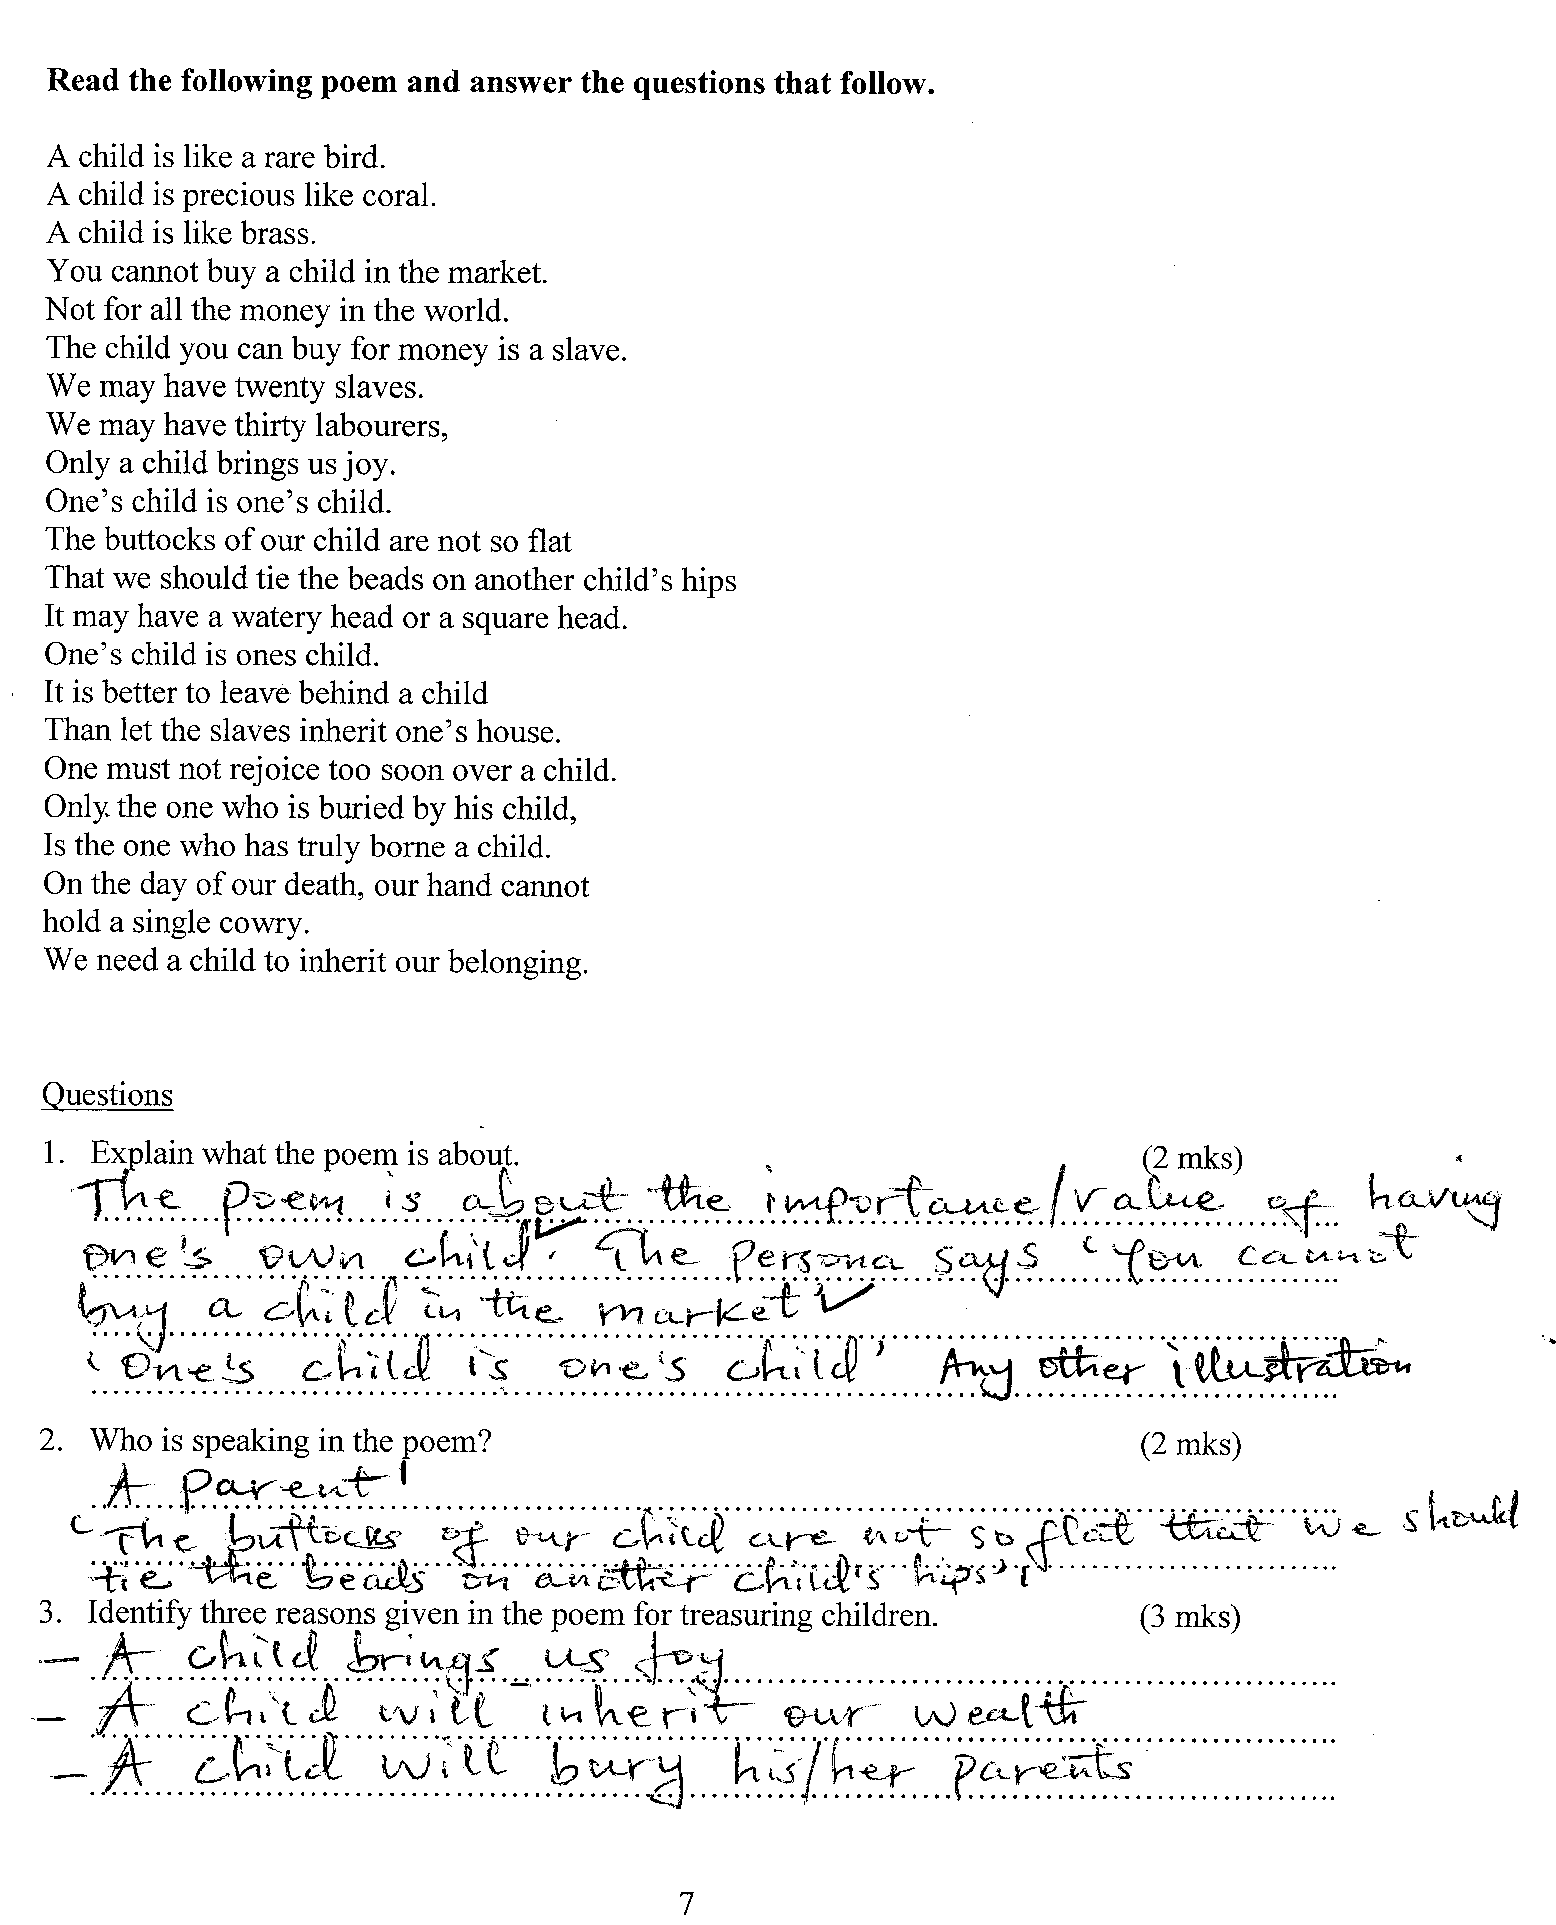 Read the following poem and answer the questions that follow.
A child is like a rare bird.
A child is precious like coral.
A child is like brass.
You cannot buy a child in the market.
Not for all the money in the world.
The child you can buy for money is a slave.
We may have twenty slaves.
We may have thirty labourers,
Only a child brings us joy.
One's child is one's child.
The buttocks of our child are not so flat
That we should tie the beads on another child's hips
It may have a watery head or a square head.
One's child is ones child.
It is better to leave behind a child
Than let the slaves inherit one's house.
One must not rejoice too soon over a child.
Only the one who is buried by his child,
Is the one who has truly borne a child.
On the day of our death, our hand cannot
hold a single cowry.
We need a child to inherit our belonging.
Questions
1. Explain what the poem is about. (2 mks)
The poem is about the importance/value of having
one's own child✓. The persona says ‘You cannot
buy a child in the market’✓
‘One's child is one's child’ Any other illustration
2. Who is speaking in the poem? (2 mks)
A parent
‘The buttocks of our child are not so flat that we should
tie the beads on another child's hips’
3. Identify three reasons given in the poem for treasuring children. (3 mks)
- A child brings us joy
- A child will inherit our wealth
- A child will bury his/her parents
7